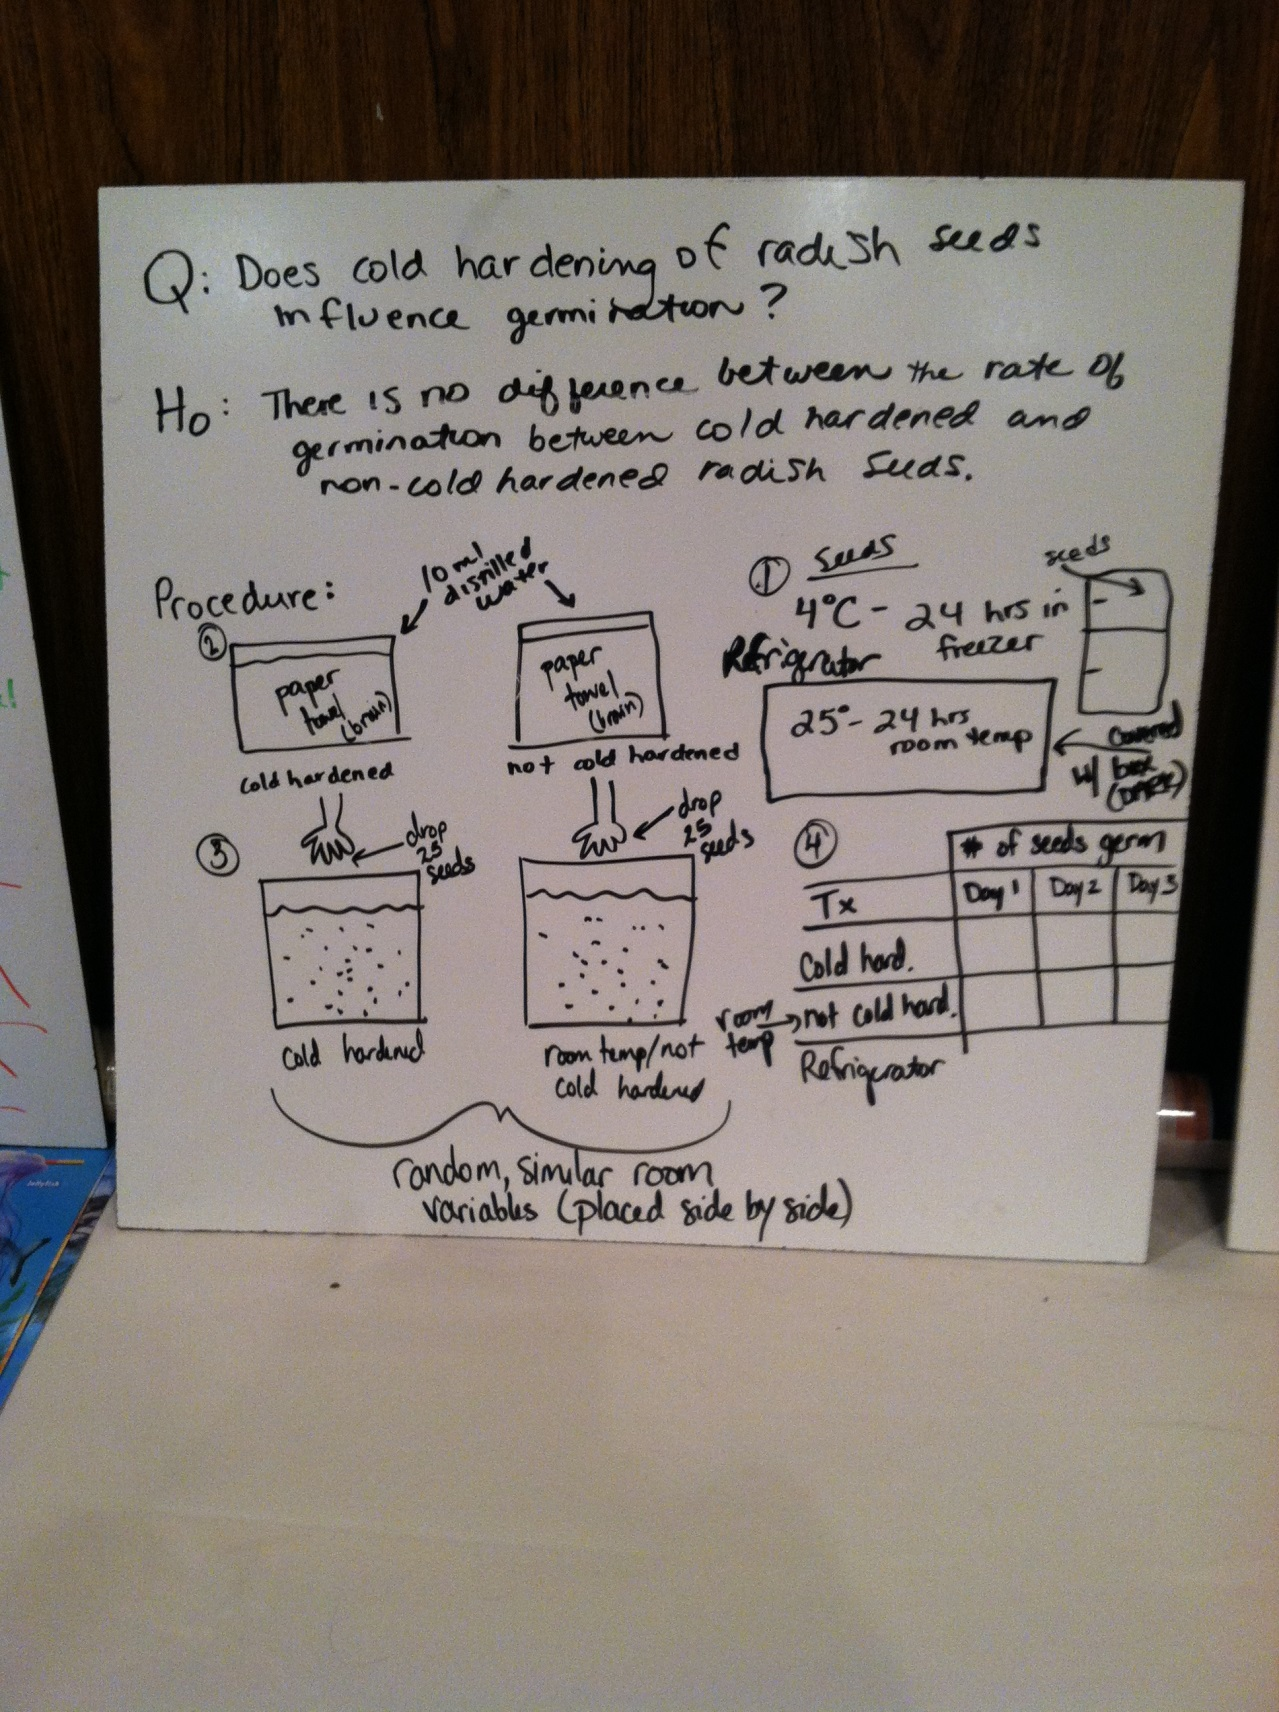 Q: Does cold hardening of radish seeds
influence germination?
Ho: There is no difference between the rate of
germination between cold hardened and
non-cold hardened radish seeds.
Procedure:
10 ml
distilled
water
②
paper
towel
(brain)
cold hardened
paper
towel
(brain)
not cold hardened
① Seeds
4°C - 24 hrs in
freezer
Refrigerator
seeds
25° - 24 hrs
room temp
covered
w/ box
③
drop
25
seeds
cold hardened
drop
25
seeds
room temp/not
cold hardened
random, similar room
variables (placed side by side)
④
# of seeds germ
Tx Day 1 Day 2 Day 3
Cold hard.
room temp → not cold hard.
Refrigerator
Jellyfish